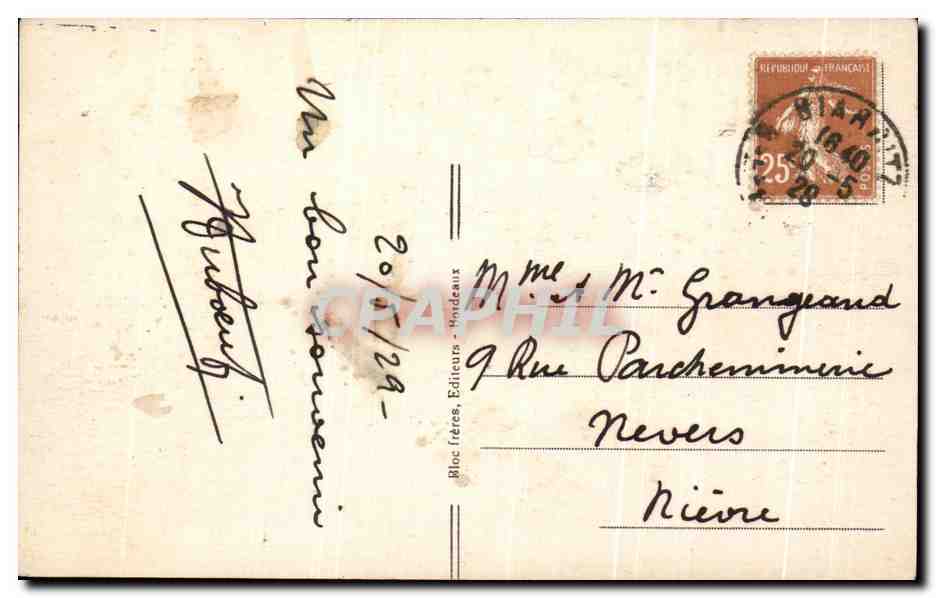 Un bon souvenir
20/5/29-
Bloc frères, Editeurs - Bordeaux
REPUBLIQUE FRANÇAISE
25
POSTES
BIARRITZ
16 40
20 -5
29
Mme & Mr Grangeaud
9 Rue Parcheminerie
Nevers
Nièvre
CPAPHIL